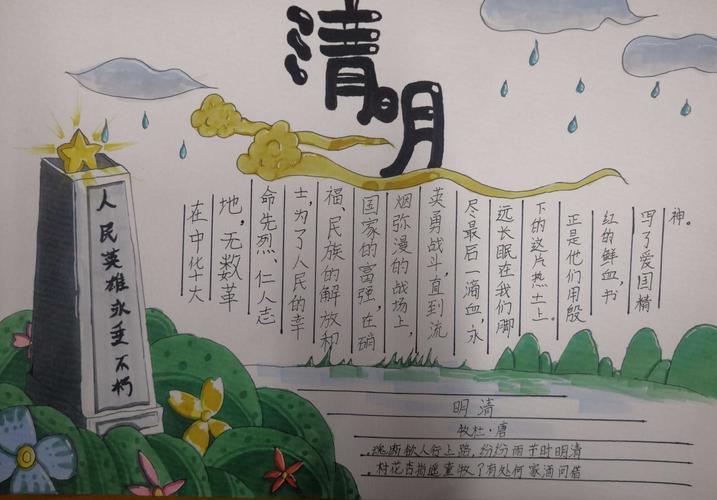 清明
人民英雄永垂不朽
在中华大
地,无数革
命先烈、仁人志
士,为了人民的幸
福、民族的解放和
国家的富强,在硝
烟弥漫的战场上,
英勇战斗,直到流
尽最后一滴血,永
远长眠在我们脚
下的这片热土上。
正是他们用殷
红的鲜血,书
写了爱国精
神。
清明
唐·杜牧
清明时节雨纷纷,路上行人欲断魂
借问酒家何处有 牧童遥指杏花村